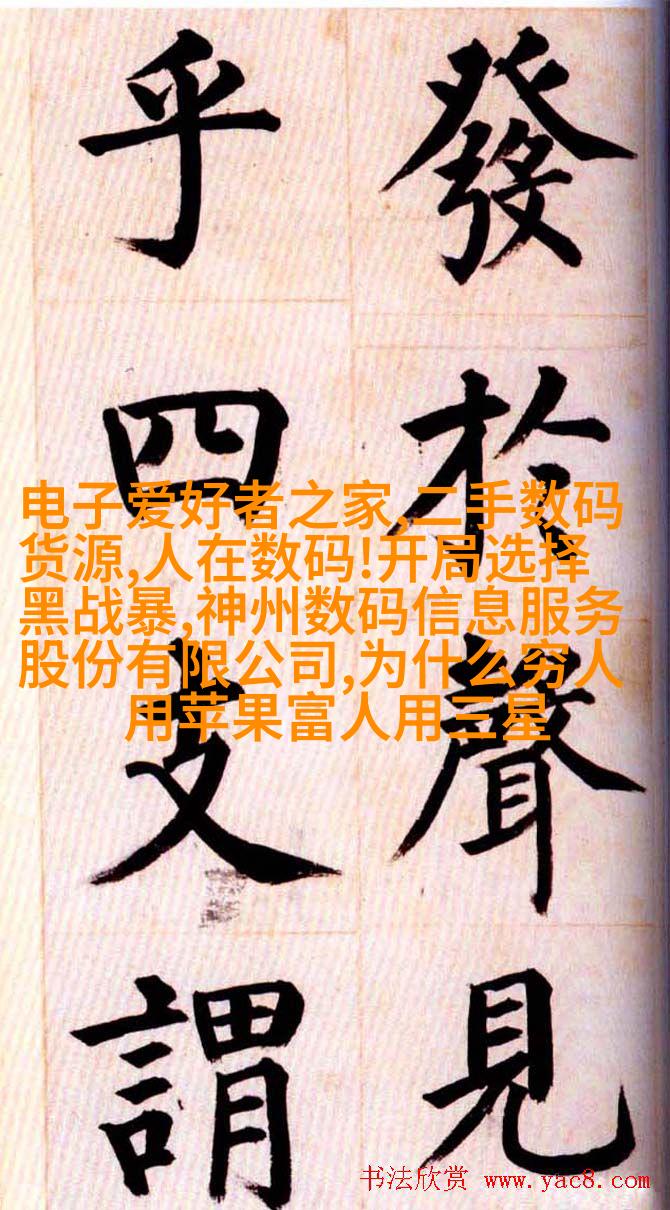 發於聲見
乎四支謂
电子爱好者之家,二手数码
货源,人在数码!开局选择
黑战暴,神州数码信息服务
股份有限公司,为什么穷人
用苹果富人用三星
书法欣赏 www.yac8.com